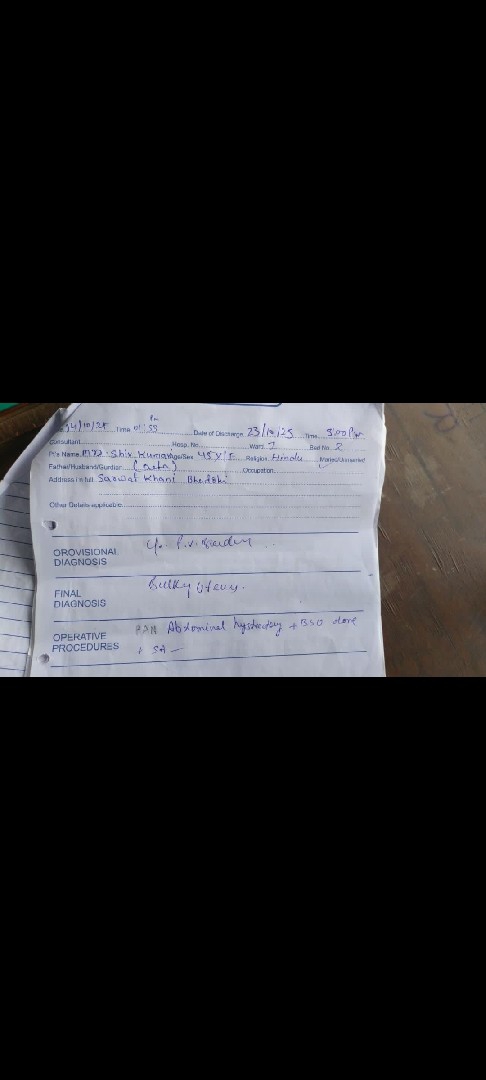 14/10/25 Time 01:55 Pm Date of Discharge 23/10/25 Time 5:00 Pm
Consultant Hosp. No. Ward 1 Bed No. 2
Pt's Name Shiv Kumari Age/Sex 45Y/F Religion Hindu Married/Unmarried
Father/Husband/Gurdian Occupation
Address in full Khani
Other Details applicable
OROVISIONAL DIAGNOSIS C/o P.V. Bleeding
FINAL DIAGNOSIS Bulky uterus.
OPERATIVE PROCEDURES Abdominal + BSO done
+ SA